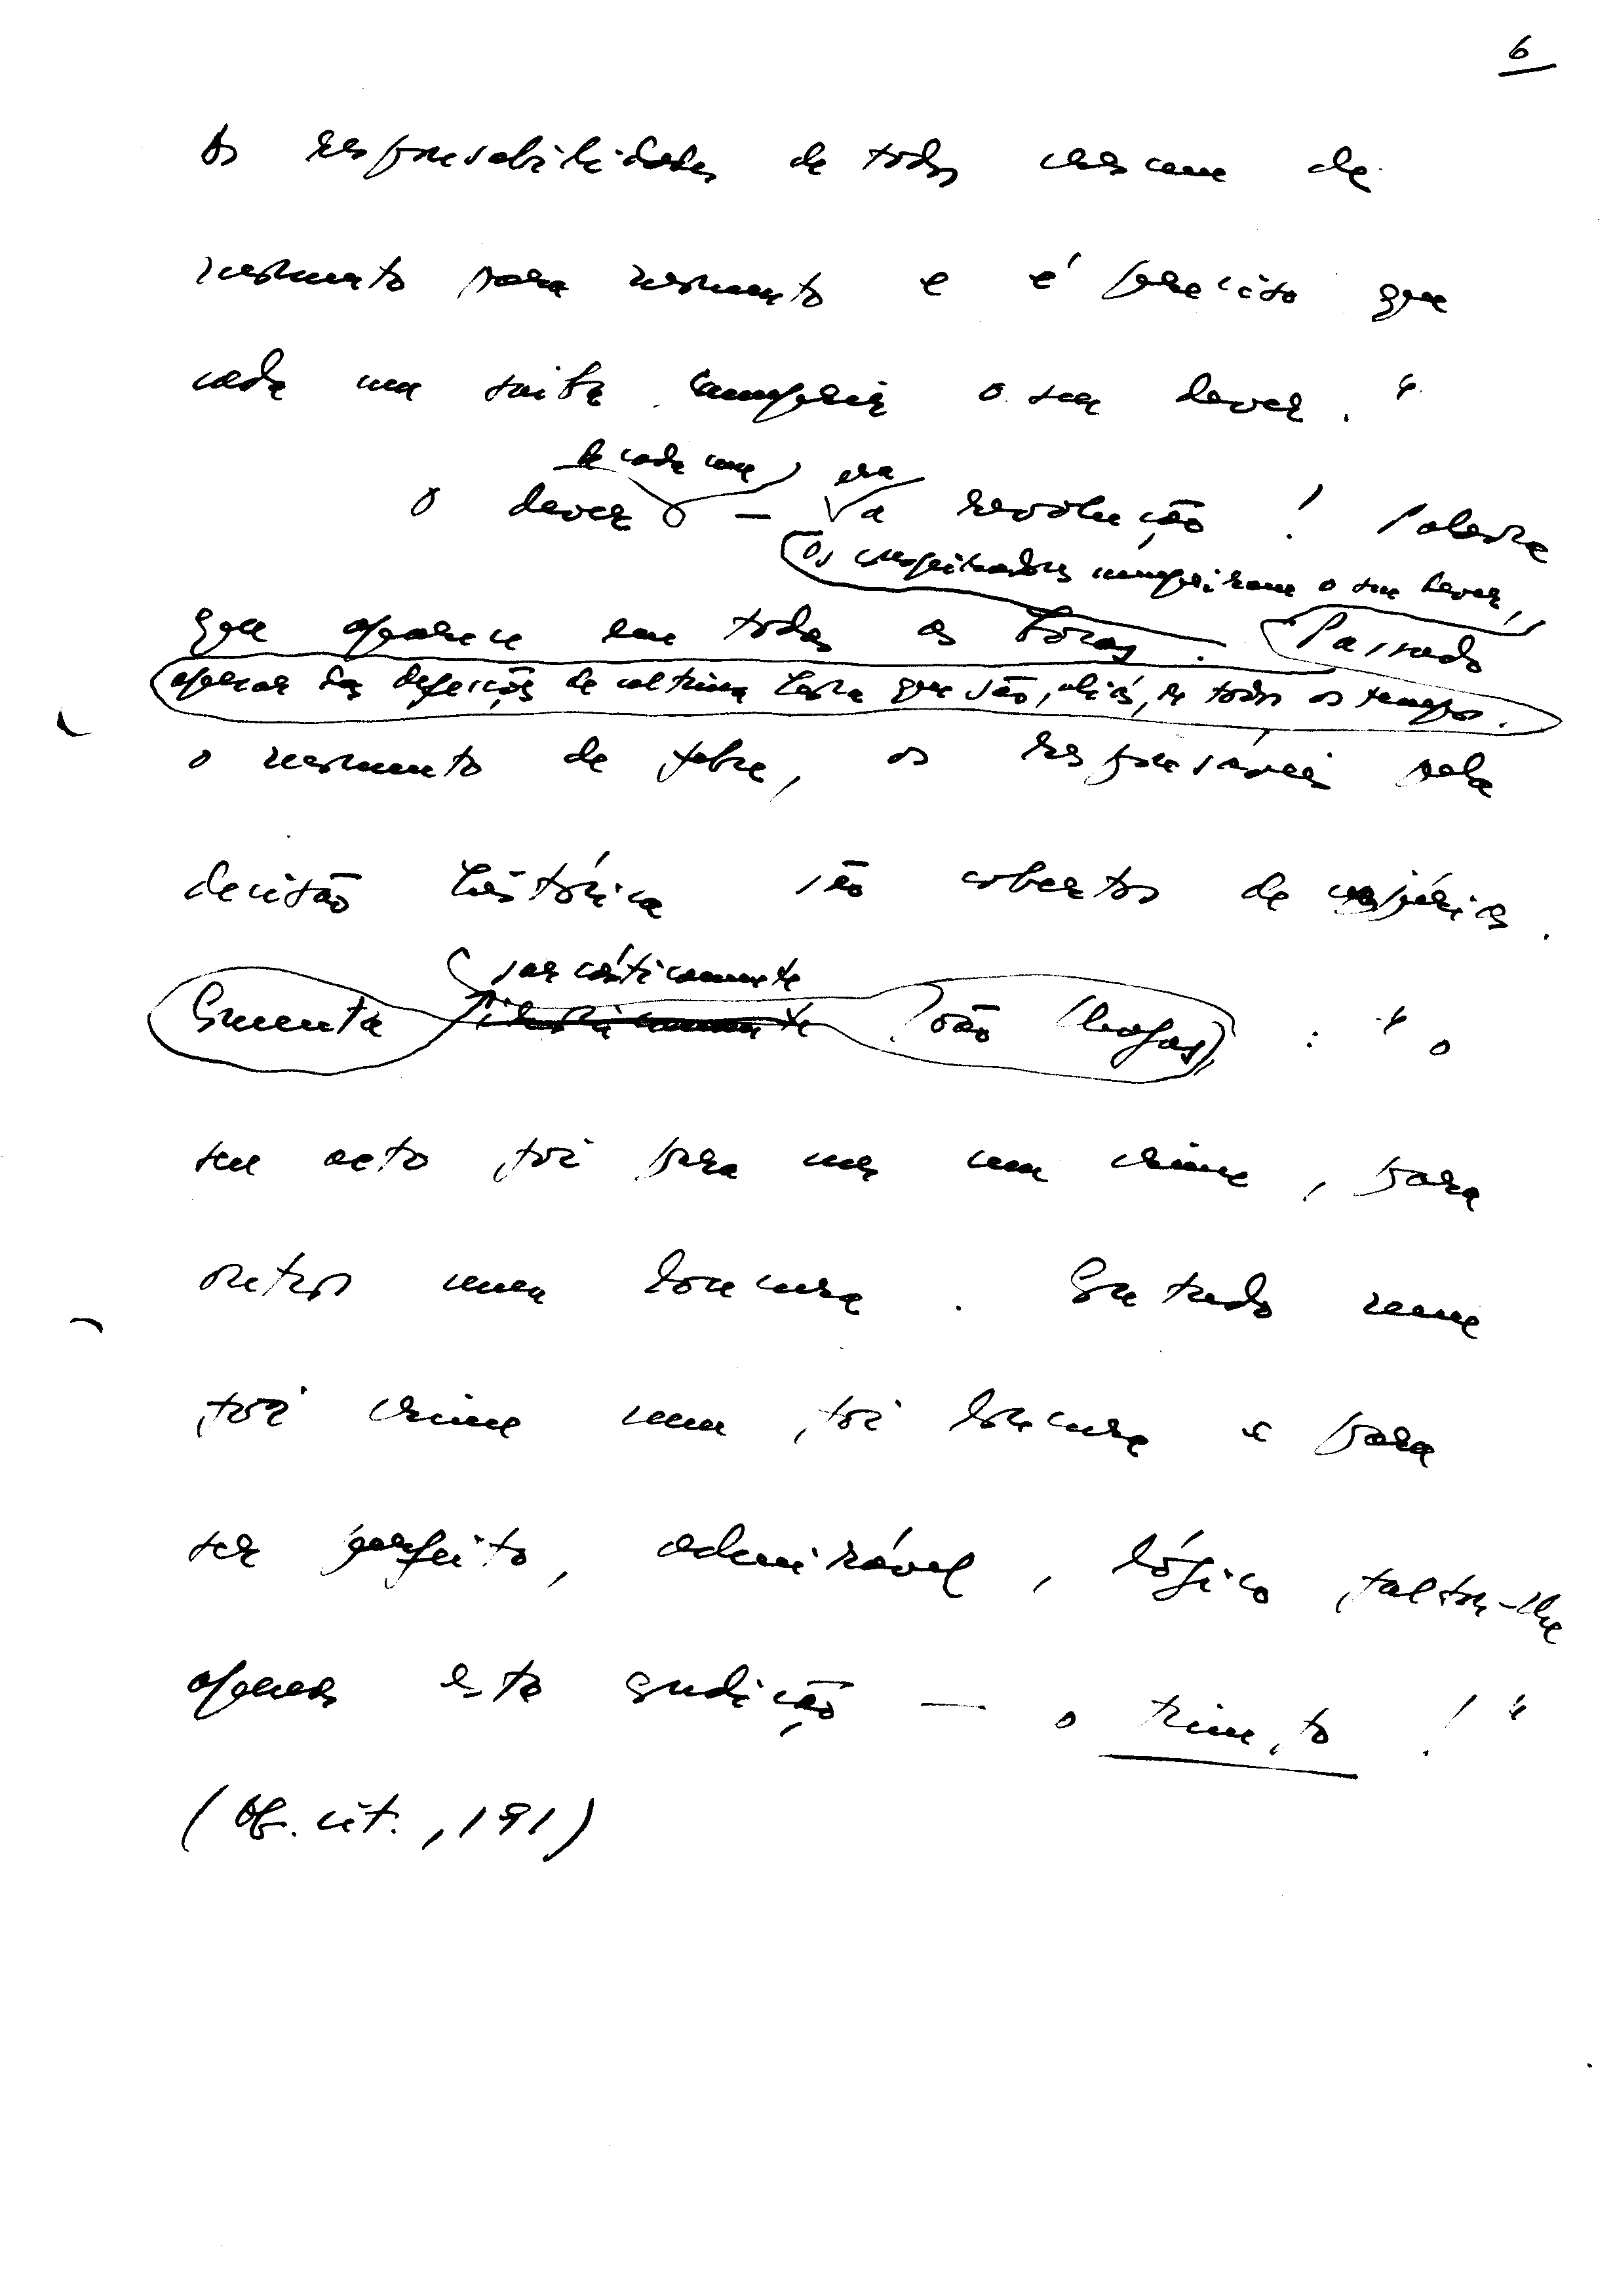 6
As responsabilidades de todos crescem de
momento para momento e é preciso que
cada um saiba cumprir o seu dever."
de cada um, era
O dever — a revolução! Palavra
Os conspiradores cumpriram o seu dever,
que aparece em todas as bocas. Passado
apesar das defecções de última hora que são, aliás, de todos os tempos.
o momento de febre, os responsáveis pela
decisão histórica são cobertos de injúrias.
sarcàsticamente
Comenta João Chagas, : "o
seu acto foi para uns um crime, para
outros uma loucura. Contudo nem
foi crime nem foi loucura e para
ser perfeito, admirável, lógico faltou-lhe
apenas esta condição — o triunfo!"
(Ob. cit., 191)